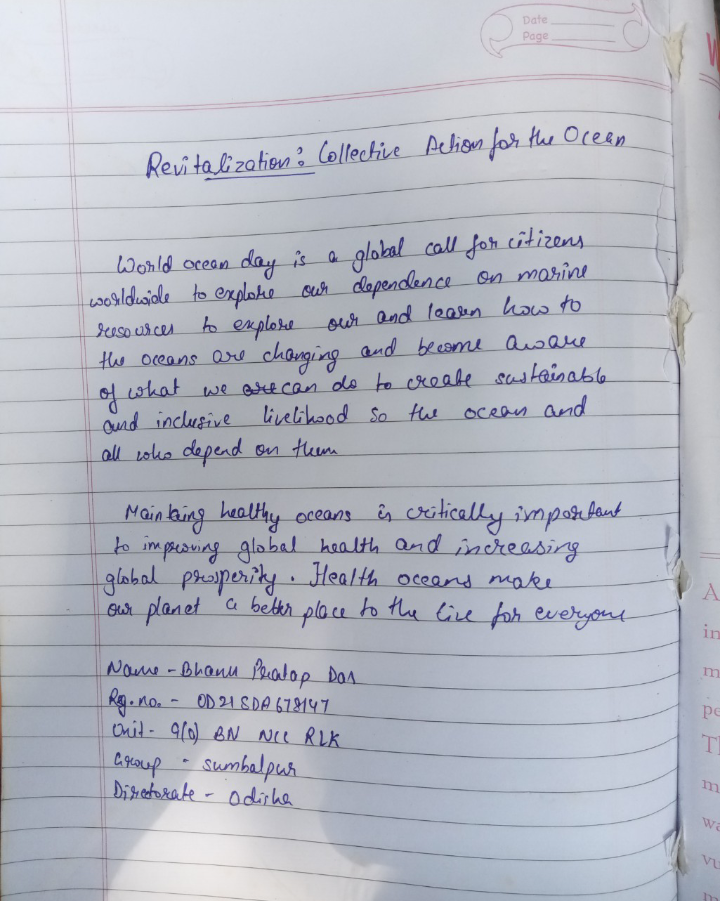 Date
Page
Revitalization: Collective Action for the Ocean
World ocean day is a global call for citizens
worldwide to explore our dependence on marine
resources to explore our and learn how to
the oceans are changing and become aware
of what we are can do to create sustainable
and inclusive livelihood so the ocean and
all who depend on them
Maintaing healthy oceans is critically important
to improving global health and increasing
global prosperity. Health oceans make
our planet a better place to the live for everyone
Name - Bhanu Pratap Das
Reg. no. - OD21SDA678147
Unit - 9(O) BN NCC RLK
Group - Sumbalpur
Directorate - Odisha
A
in
m
pe
T
m
wa
vu
m